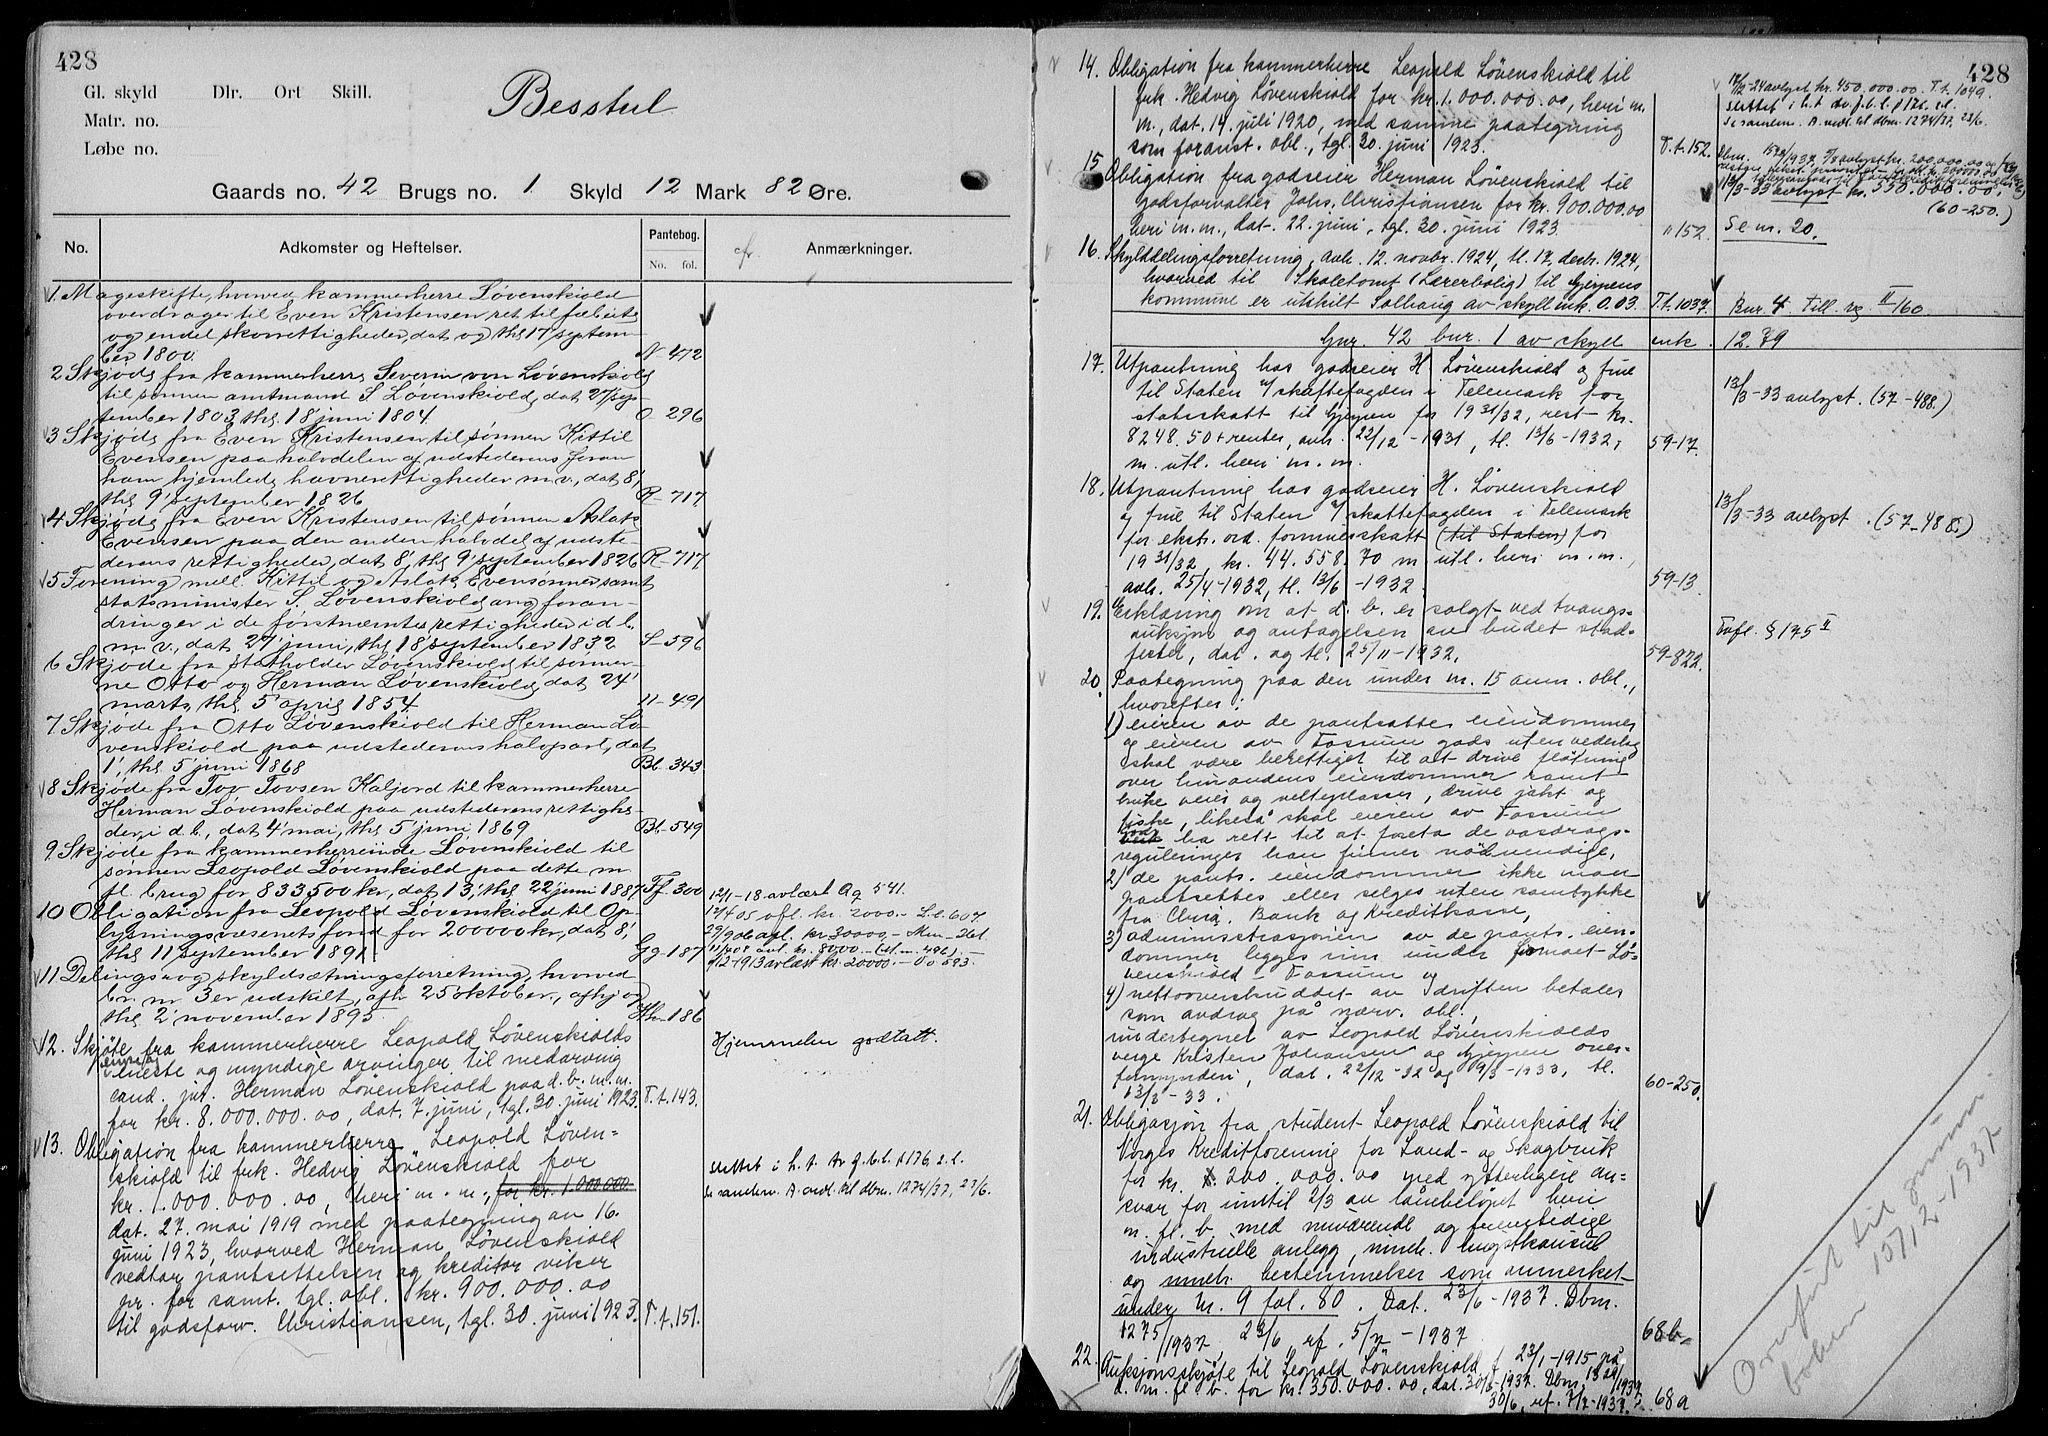 428
Gl. skyld Dlr. Ort Skill.
Matr. no.
Løbe no.
Besstul
Gaards no. 42 Brugs no. 1 Skyld 12 Mark 82 Øre.
No. Adkomster og Heftelser. Pantebog. No. fol. cfr. Anmærkninger.
1. Mageskifte, hvorved kammerherre Løvenskiold
overdrager til Even Kristensen ret til fæbeite
og endel skovrettigheder, dat og thl 17 septem-
ber 1800. N- 472
2 Skjøde fra kammerherre Severin von Løvenskiold
til sønnen amtmand S Løvenskiold, dat 27 sep-
tember 1803, thl 18 juni 1804. O- 296
3 Skjøde fra Even Kristensen til sønnen Kittil
Evensen paa halvdelen af udstederens foran
ham hjemlede havnerettigheder m.v., dat 8',
thl 9' september 1826 R- 717
4 Skjøde fra Even Kristensen til sønnen Aslak
Evensen paa den anden halvdel af udste-
derens rettigheder, dat 8', thl 9' september 1826 R- 717
5 Forening mell. Kittil og Aslak Evensønner samt
statsminister S. Løvenskiold ang foran-
dringer i de førstnæmtes rettigheder i d b.
m v., dat 27' juni, thl 18 september 1832 S- 596
6 Skjøde fra statholder Løvenskiold til sønner-
ne Otto og Herman Løvenskiold, dat 24'
marts, thl 5' april 1854 11- 491
7 Skjøde fra Otto Løvenskiold til Herman Lø-
venskiold paa udstederens halvpart, dat
1', thl 5' juni 1868 Bb- 343
8 Skjøde fra Tov Tovsen Kaljord til kammerherre
Herman Løvenskiold paa udstederens rettighe-
der i d. b., dat 4' mai, thl 5' juni 1869 Bb- 549
9 Skjøde fra kammerherreinde Løvenskiold til
sønnen Leopold Løvenskiold paa dette m
fl brug for 833500 kr, dat 13', thl 22' juni 1887 Ff- 300
10 Obligation fra Leopold Løvenskiold til Op-
lysningsvæsenets fond for 200000 kr, dat 8',
thl 11 september 1891. Gg- 187
12/1-18 avlæst Qq 541.
12/4 05 afl. kr. 2000.- L.l. 607
29/9 06 afl. kr 20000.-
11/4 08 ant kr. 8000.- (M.m. 496).-
9/12-1913 avlæst kr. 20000.- Oo 593.-
11 Delings- og skyldsætningsforretning, hvorved
br. nr 3 er udskilt, afh 25 oktober, afhj og
thl 2' november 1895 186
12. Skjøte fra kammerherre Leopold Løvenskiolds
eneste og myndige arvinger til medarving
cand. jur. Herman Løvenskiold paa d. b. m. m.
for kr. 8.000.000.00, dat. 7. juni, tgl. 30. juni 1923. T.t. 143.
Hjemmelen godtatt.
13. Obligation fra kammerherre Leopold Løven=
skiold til frk. Hedvig Løvenskiold for
kr. 1.000.000.00, heri m. m., for kr. 1.000.000
dat. 27. mai 1919 med paategning av 16.
juni 1923, hvorved Herman Løvenskiold
vedtar pantsettelsen og kreditor viker
pr. for samt. tgl. obl. kr. 900.000.00
til godsforv. Christiansen, tgl. 30. juni 1923. T.t. 151.
slettet i h. t. tv. f. b. l. § 176, 2. l.
Se samlem. A. vedl. til dbm. 1274/37, 23/6.
428
14. Obligation fra kammerherre Leopold Løvenskiold til
frk. Hedvig Løvenskiold for kr. 1.000.000.00, heri m.
m., dat. 14. juli 1920, med samme paategning
som foranst. obl., tgl. 30. juni 1923. T.t. 152.
-24 avlyst kr. 450,000.00. T.t. 1049.
slettet i h. t. tv. f. b. l. § 176, 2. l.
Se samlem. A. vedl. til dbm. 1274/37, 23/6.
15 Obligation fra godseier Herman Løvenskiold til
Godsforvalter Johs. Christiansen for kr. 900.000.00
heri m. m., dat. 22. juni, tgl. 30. juni 1923 " 152.
13/3-33 avlyst kr. 550.000.00.
(60-250.)
Se nr. 20.
16. Skylddelingsforretning, avh. 12. novbr. 1924, tl. 17. desbr. 1924,
hvorved til Skoletomt (Lærerbolig) til Gjerpens
kommune er utskilt Solhaug av skyld mk. 0.03. T.t. 1037.
Bnr. 4 till. vg II/160
Gnr. 42 bnr. 1 av skyld mk. 12.79
17. Utpantning hos godseier H Løvenskiold og frue
til Staten v/skattefogden i Telemark for
statsskatt til Gjerpen for 1931/32, rest kr.
8248.50 + renter, avh. 22/12-1931, tl. 13/6-1932,
m. utl. heri m. m. 59-17.
13/3-33 avlyst. (57-488.)
18. Utpantning hos godseier H. Løvenskiold
og frue til Staten v/skattefogden i Telemark
for ekstr. ord. formuesskatt (til Staten) for
1931/32, kr. 44.558.70 m utl. heri m. m.,
avh. 25/4-1932, tl. 13/6-1932. 59-13.
13/3-33 avlyst. (57-488.)
19. Erklæring om at d. b. er solgt ved tvangs=
auksjon og antagelsen av budet stad=
festet, dat. og tl. 25/11-1932. 59-822.
Tvfl. § 175 II
20. Paategning paa den under nr. 15 anm. obl.,
hvorefter:
1) eieren av de pantsatte eiendommer
og eieren av Fossum gods uten vederlag
skal være berettiget til at drive fløtning
over hinandens eiendommer samt
bruke veier og velteplasser, drive jakt og
fiske, likeså skal eieren av Fossum
gods ha rett til at foreta de vasdrags-
reguleringer han finner nødvendige,
2) de pants. eiendommer ikke maa
pantsettes eller selges uten samtykke
fra Chra. Bank og Kreditkasse,
3) administrasjonen av de pants. eien-
dommer legges inn under firmaet Lø-
venskiold - Fossum og
4) nettooverskuddet av driften betales
som avdrag på nærv. obl.,
undertegnet av Leopold Løvenskiolds
verge Kristen Johansen og Gjerpen over-
formynderi, dat. 22/12-32 og 9/3-1933, tl.
13/3-33. 60-250.
21. Obligasjon fra student Leopold Løvenskiold til
Norges Kreditforening for Land- og Skogbruk
for kr. 200.000.00 med ytterligere an=
svar for inntil 2/3 av lånebeløpet heri
m. fl. b. med nuværende og fremtidige
industrielle anlegg,
og bestemmelser som anmerket
under Nr. 9 fol. 80. Dat. 23/6-1937. Dbm.
1275/1937, 23/6 rf. 5/7-1937 68b
22. Auksjonsskjøte til Leopold Løvenskiold f. 23/1-1915 på
d. m. fl b. for kr. 350.000.00, dat. 30/6-1937. Dbm.
30/6, rf. 7/7-1937. 68a
Overført til
boken 15/12-1937